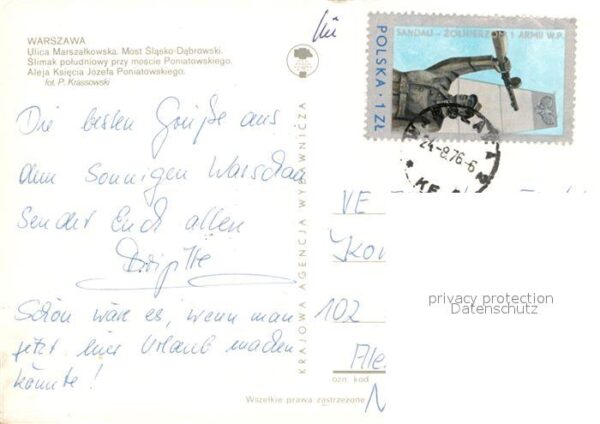 WARSZAWA
Ulica Marszałkowska. Most Śląsko-Dąbrowski.
Ślimak południowy przy moście Poniatowskiego.
Aleja Księcia Józefa Poniatowskiego.
fot. P. Krassowski
Die besten Grüße aus
dem Sonnigen Warschau
Sendet Euch allen
Brigitte
Schön wäre es, wenn man
jetzt hier Urlaub machen
könnte!
KRAJOWA AGENCJA WYDAWNICZA
Wszelkie prawa zastrzeżone
SANDAU – ŻOŁNIERZOM 1 ARMII W.P.
POLSKA · 1 ZŁ
WARSZAWA
24-8.76-6
VE
102
ozn. kod
privacy protection
Datenschutz